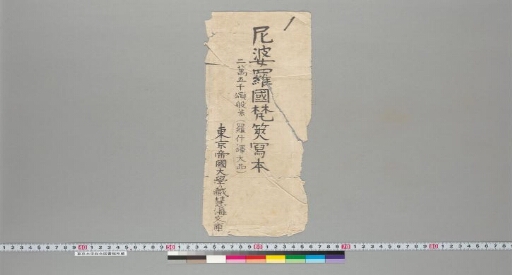 尼婆羅國梵筴寫本
二萬五千頌般若(羅什譯大品)
東京帝國大學